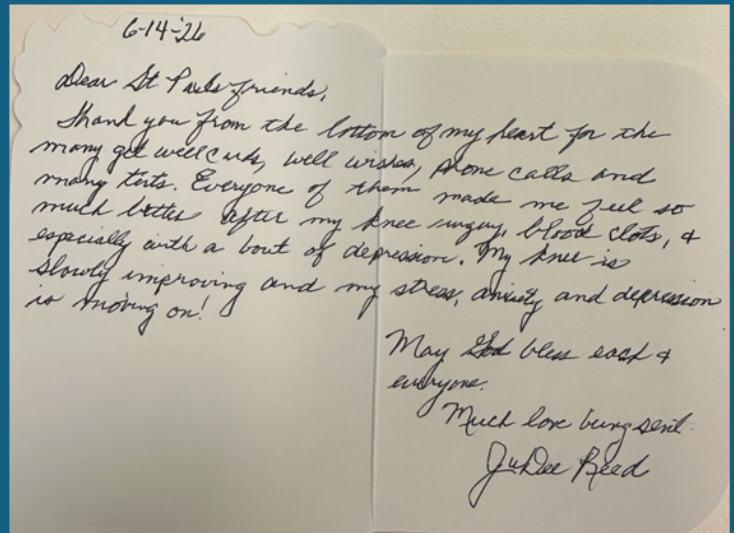 6-14-'26
Dear St Pauls friends,
Thank you from the bottom of my heart for the
many get well cards, well wishes, phone calls and
many texts. Everyone of them made me feel so
much better after my knee surgery, blood clots, &
especially with a bout of depression. My knee is
slowly improving and my stress, anxiety and depression
is moving on!
May God bless each &
everyone.
Much love being sent
JuDee Reed